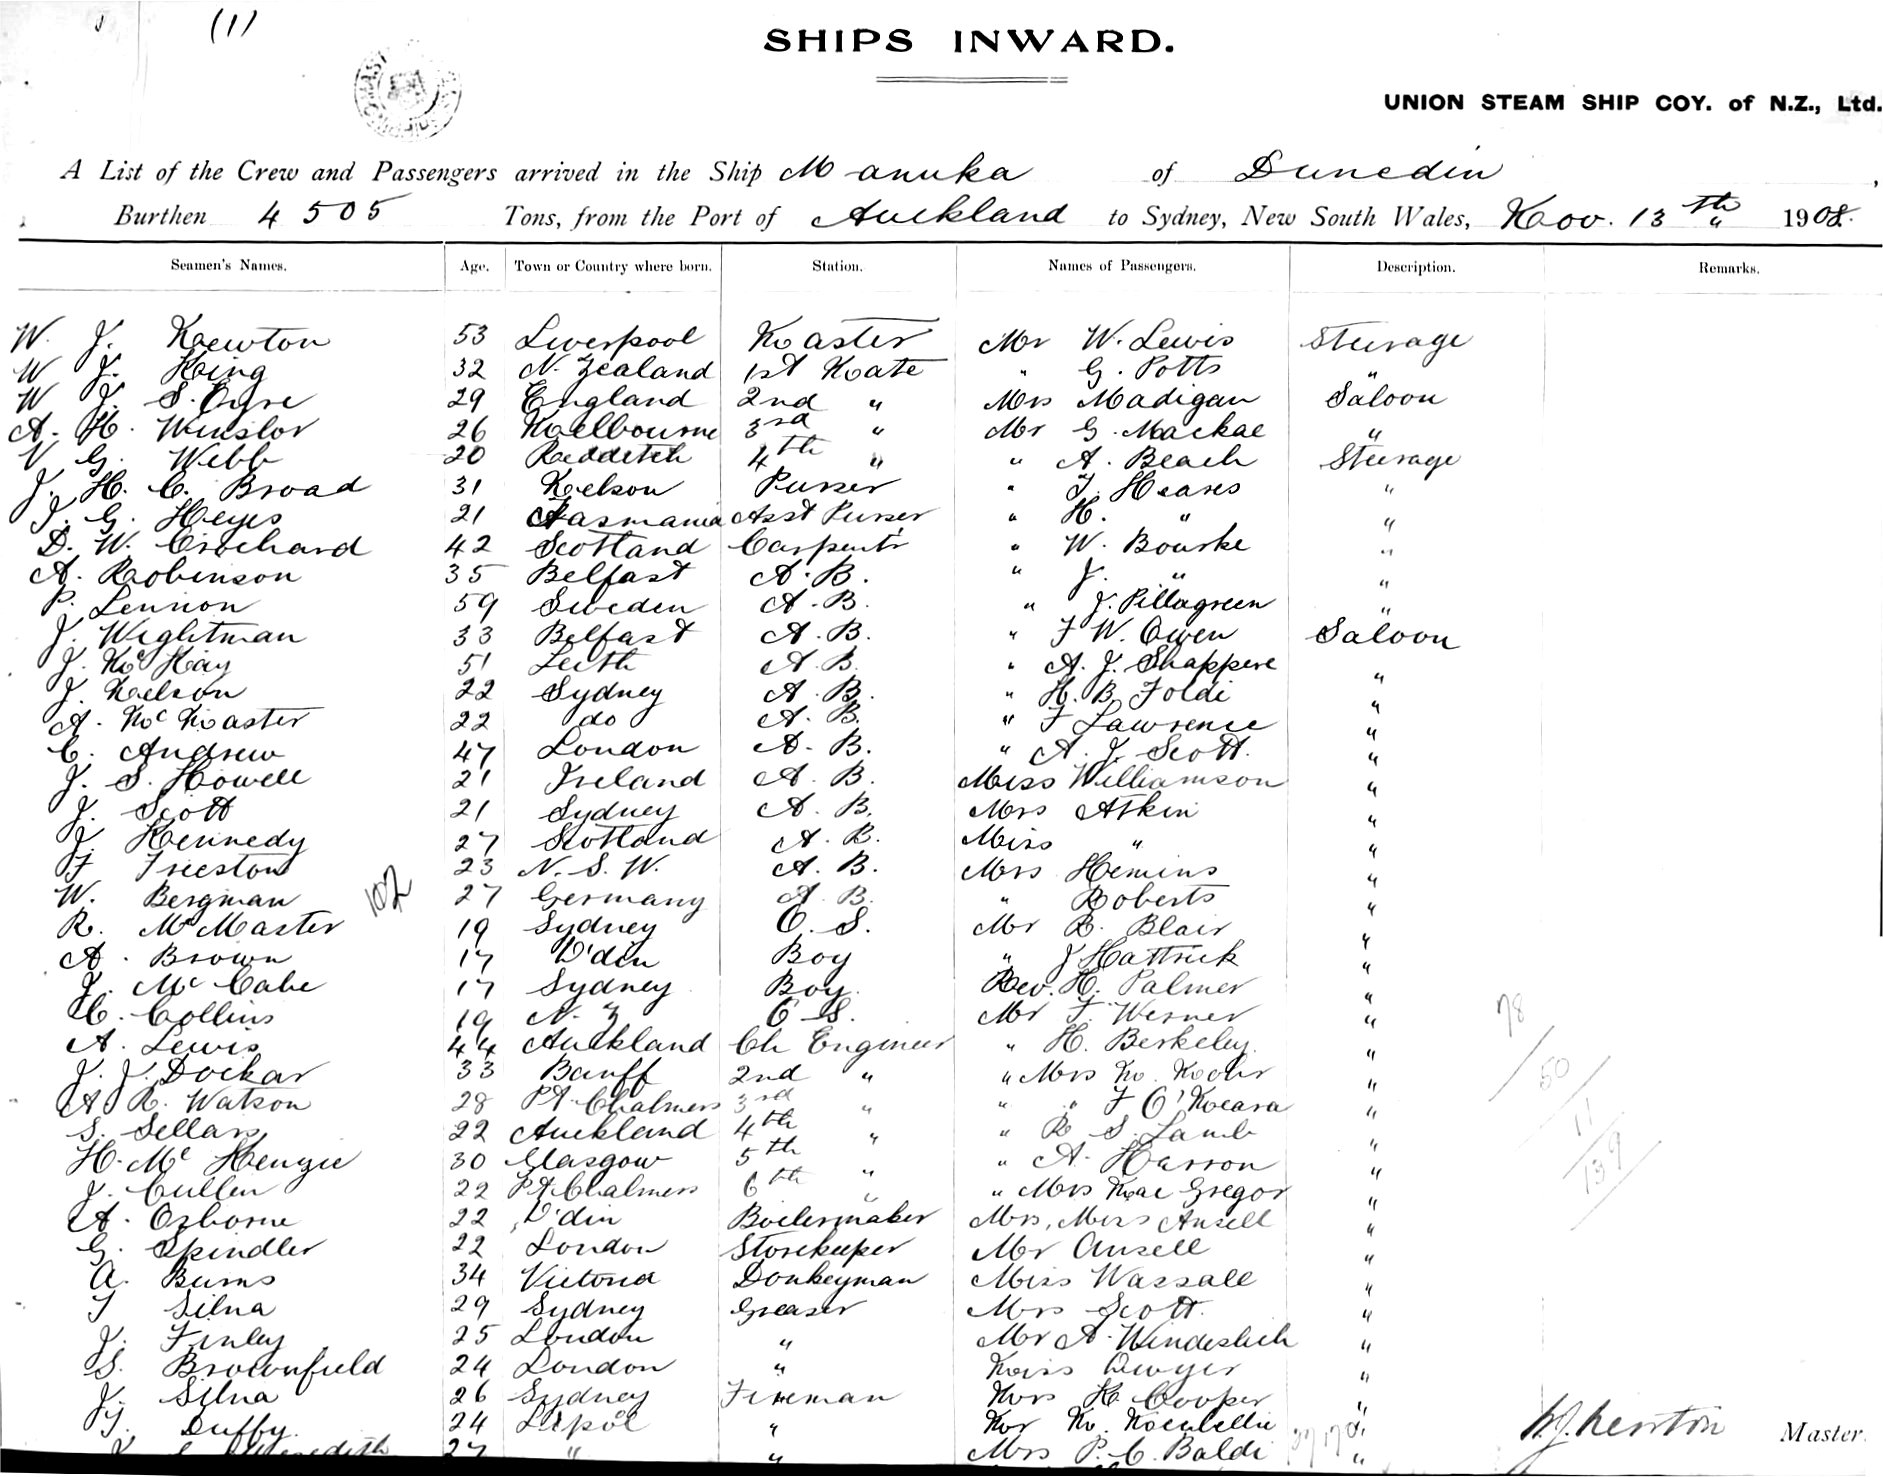 (1)
SHIPS INWARD.
UNION STEAM SHIP COY. of N.Z., Ltd.
A List of the Crew and Passengers arrived in the Ship Manuka of Dunedin
Burthen 4505 Tons, from the Port of Auckland to Sydney, New South Wales, Nov. 13th 1908.
Seamen's Names. Age. Town or Country where born. Station. Names of Passengers. Description. Remarks.
W. J. Newton 53 Liverpool Master Mr W. Lewis Steerage
W J. King 32 N. Zealand 1st Mate " G. Potts "
W J. S. Eyre 29 England 2nd " Mrs Madigan Saloon
A. H. Winslor 26 Melbourne 3rd " Mr G. Mackae "
V G. Webb 20 Redditch 4th " " A. Beach Steerage
J. H. C. Broad 31 Nelson Purser " J. Heares "
J. G. Heyes 21 Tasmania Asst Purser " H. " "
D. W. Crochard 42 Scotland Carpentr " W. Bourke "
A. Robinson 35 Belfast A. B. " J. " "
P. Lennon 59 Sweden A. B. " J. Pillagreen "
J. Wightman 33 Belfast A. B. " F W. Owen Saloon
J. McKay 51 Leith A. B. " A. J. Shappere "
J. Nelson 22 Sydney A. B. " H. B. Foldi "
A. McMaster 22 do A. B. " F Lawrence "
C. Andrew 47 London A. B. " A. J. Scott. "
J. S. Howell 21 Ireland A. B. Miss Williamson "
J. Scott 21 Sydney A. B. Mrs Atkin "
J. Kennedy 27 Scotland A. B. Miss " "
F Freestone 23 N. S. W. A. B. Mrs Hemins "
W. Bergman 102 27 Germany A. B. " Roberts "
R. McMaster 19 Sydney O. S. Mr R. Blair "
A. Brown 17 D'din Boy " J Hattrick "
J. McCabe 17 Sydney Boy. Rev. H. Palmer "
C. Collins 19 N. Z O. S. Mr F. Werner " 78
A. Lewis 44 Auckland Ch Engineer " H. Berkeley. "
J. J. Dockar 33 Banff 2nd " " Mrs M. " 50
A R. Watson 28 Pt Chalmers 3rd " " " F O'Meara " 11
S. Sellars 22 Auckland 4th " " R S. Lamb "
H. McKenzie 30 Glasgow 5th " A. Harron " 139
J. Cullen 22 Pt Chalmers 6th " " Mrs MacGregor "
A. Ozborne 22 D'din Boilermaker Mrs, Miss Ansell "
G. Spindler 22 London Storekeeper Mr Ansell "
A. Burns 34 Victoria Donkeyman Miss Wassall "
J Silna 29 Sydney Greaser Mrs Scott. "
J. Finley 25 London " Mr A. Windeslich "
S. Brownfield 24 London " Miss Dwyer "
J. Silna 26 Sydney Fireman Mrs H Cooper "
J. Duffy. 24 L'pool " Mr M. "
Meredith 27 " " Mrs P. C. Baldi "
W.J. Newton Master.